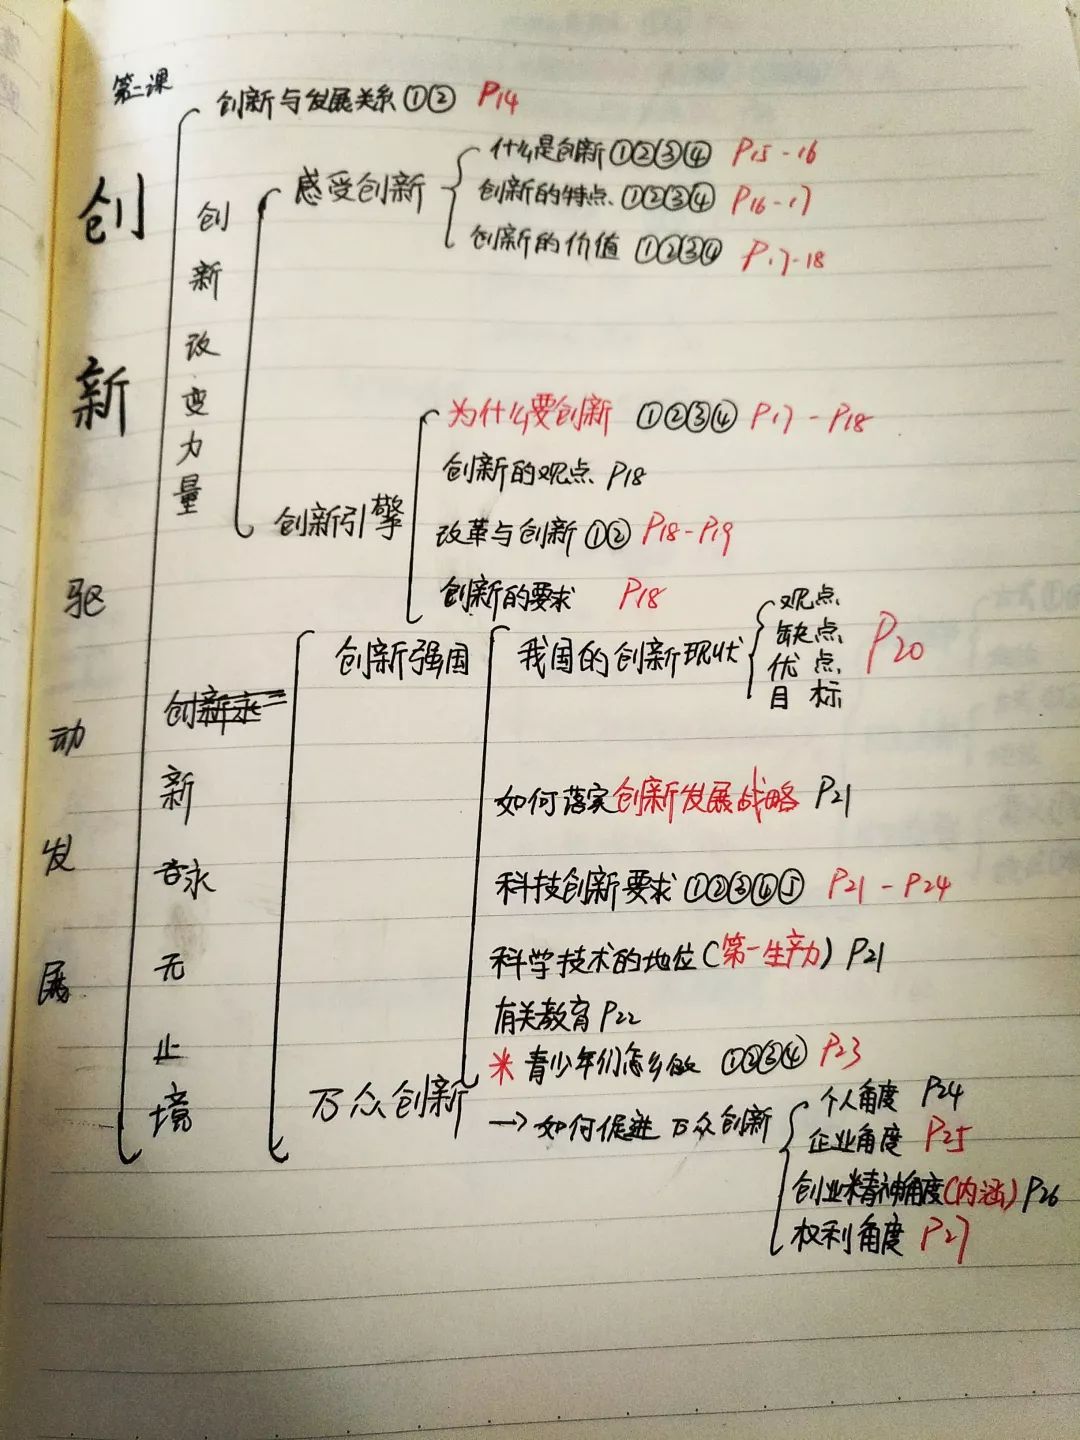 第二课
创新驱动发展
创新改变力量
创新与发展关系①② P14
感受创新
什么是创新①②③④ P15-16
创新的特点①②③④ P16-17
创新的价值①②③④ P17-18
创新引擎
为什么要创新①②③④ P17-P18
创新的观点 P18
改革与创新①② P18-P19
创新的要求 P18
创新永
新
永
无
止
境
创新强国
我国的创新现状
观点
缺点
优点
目标
P20
如何落实创新发展战略 P21
科技创新要求①②③④⑤ P21-P24
科学技术的地位(第一生产力)P21
有关教育P22
米 青少年们怎么做 ①②③④ P23
万众创新
→如何促进万众创新
个人角度 P24
企业角度 P25
创业精神角度(内涵)P26
权利角度 P27